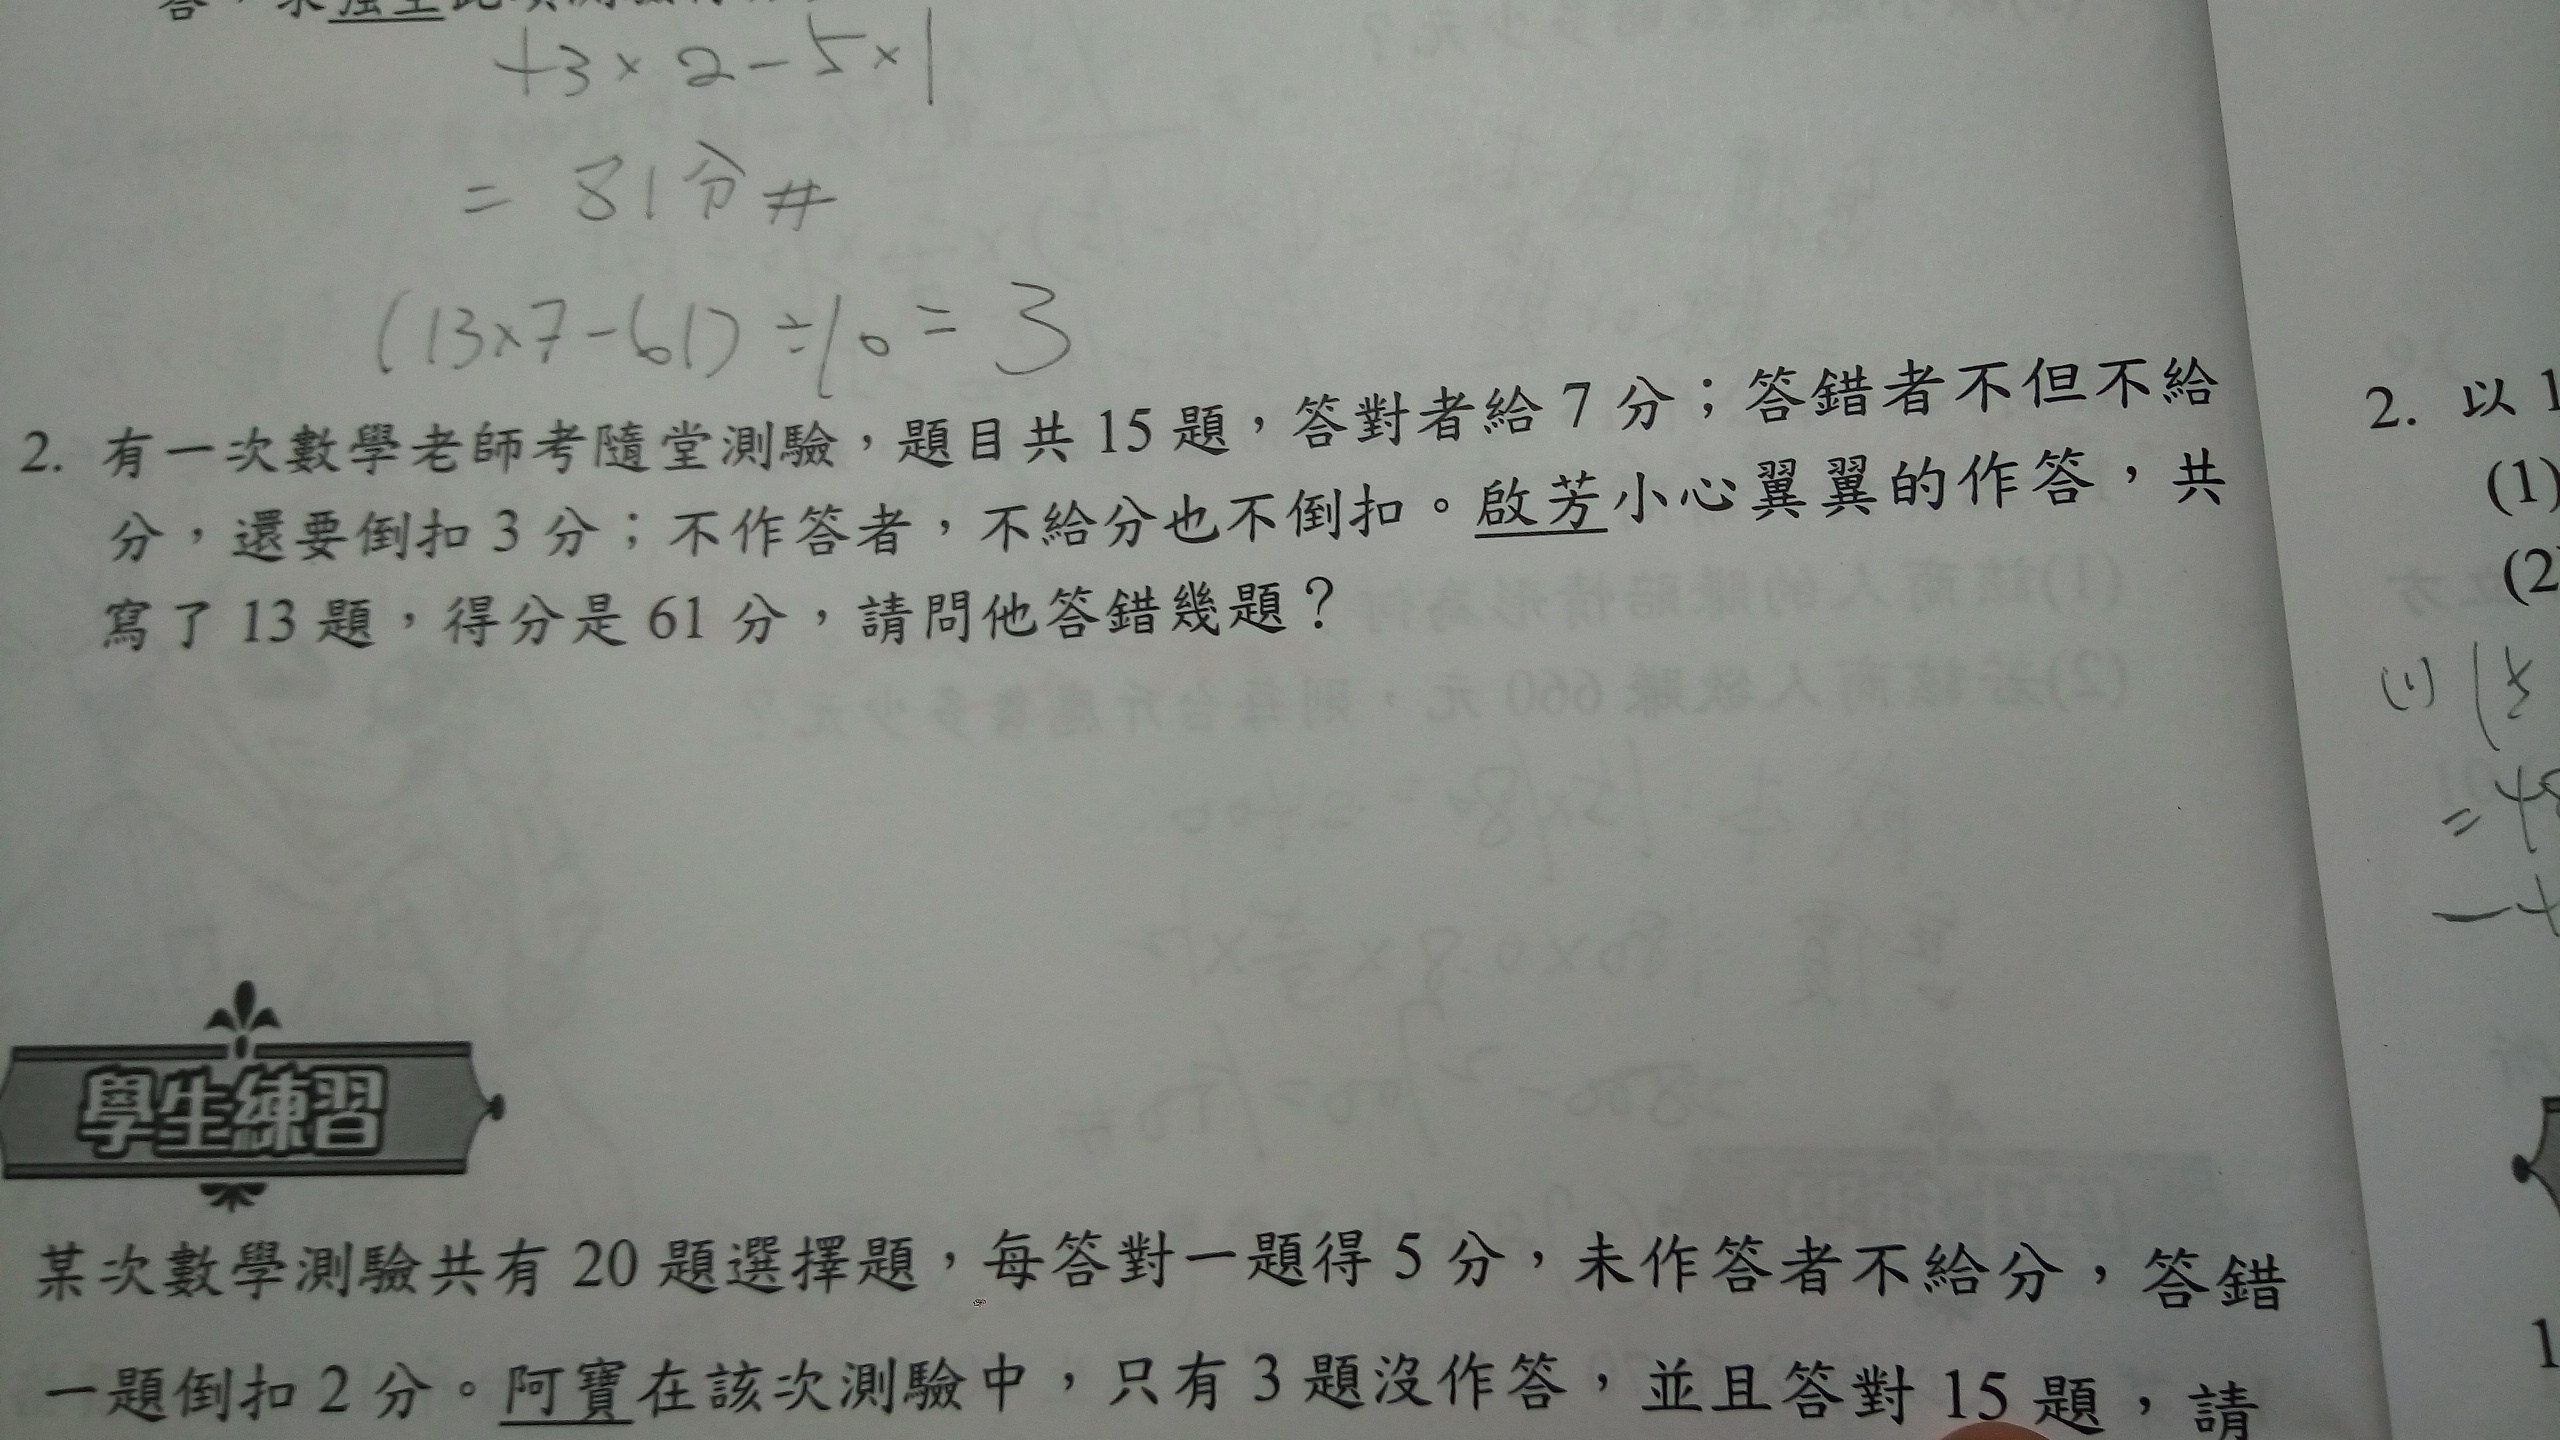 +3×2-5×1
= 81分#
(13×7-61)÷10=3
2. 有一次數學老師考隨堂測驗，題目共 15 題，答對者給 7 分；答錯者不但不給
分，還要倒扣 3 分；不作答者，不給分也不倒扣。啟芳小心翼翼的作答，共
寫了 13 題，得分是 61 分，請問他答錯幾題？
學生練習
某次數學測驗共有 20 題選擇題，每答對一題得 5 分，未作答者不給分，答錯
一題倒扣 2 分。阿寶在該次測驗中，只有 3 題沒作答，並且答對 15 題，請
2. 以 1
(1)
(2
(1)
1